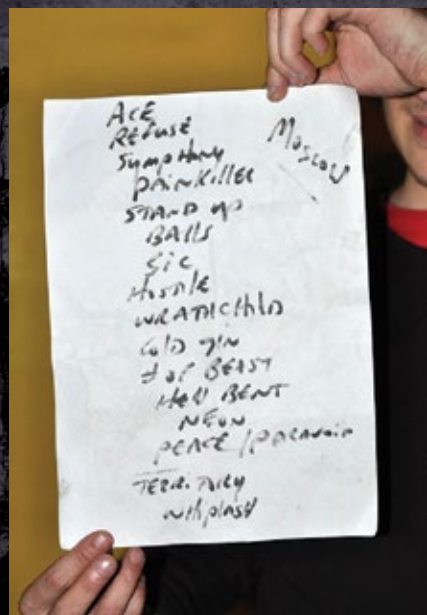 ACE
REFUSE
Symphony
PAINKILLER
STAND UP
BALLS
Sic
HOSTILE
WRATHCHILD
COLD GIN
# OF BEAST
HELL BENT
NEON
PEACE / PARANOID
TERRITARY
WHIPLASH
MOSCOW